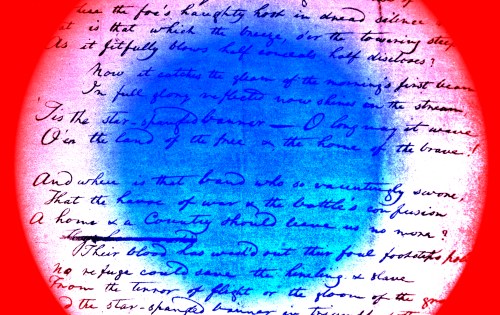 the foe's haughty host in dread silence
is that which the breeze, o'er the towering steep
As it fitfully blows, half conceals half discloses?
Now it catches the gleam of the morning's first beam
In full glory reflected now shines in the stream
'Tis the star-spangled banner — O long may it wave
O'er the land of the free & the home of the brave!
And where is that band who so vauntingly swore,
That the havoc of war & the battle's confusion
A home & a Country should leave us no more?
Their blood has wash'd out their foul footstep's
No refuge could save the hireling & slave
From the terror of flight or the gloom of the
the star-spangled banner in